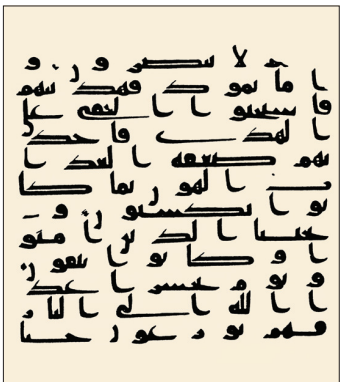 هم لا ينصرون و
اما ثمود فهدينهم
فاستحبوا العمى على
الهدى فاخذت
هم صعقة العذا
ب الهون بما كا
نوا يكسبون و
نجينا الذين امنو
ا وكانوا يتقون
ويوم يحشر اعد
ا الله الى النار
فهم يوزعون حتى